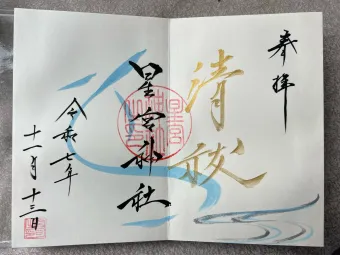 奉拝
清祓
星宮神社
令和七年
十一月十三日